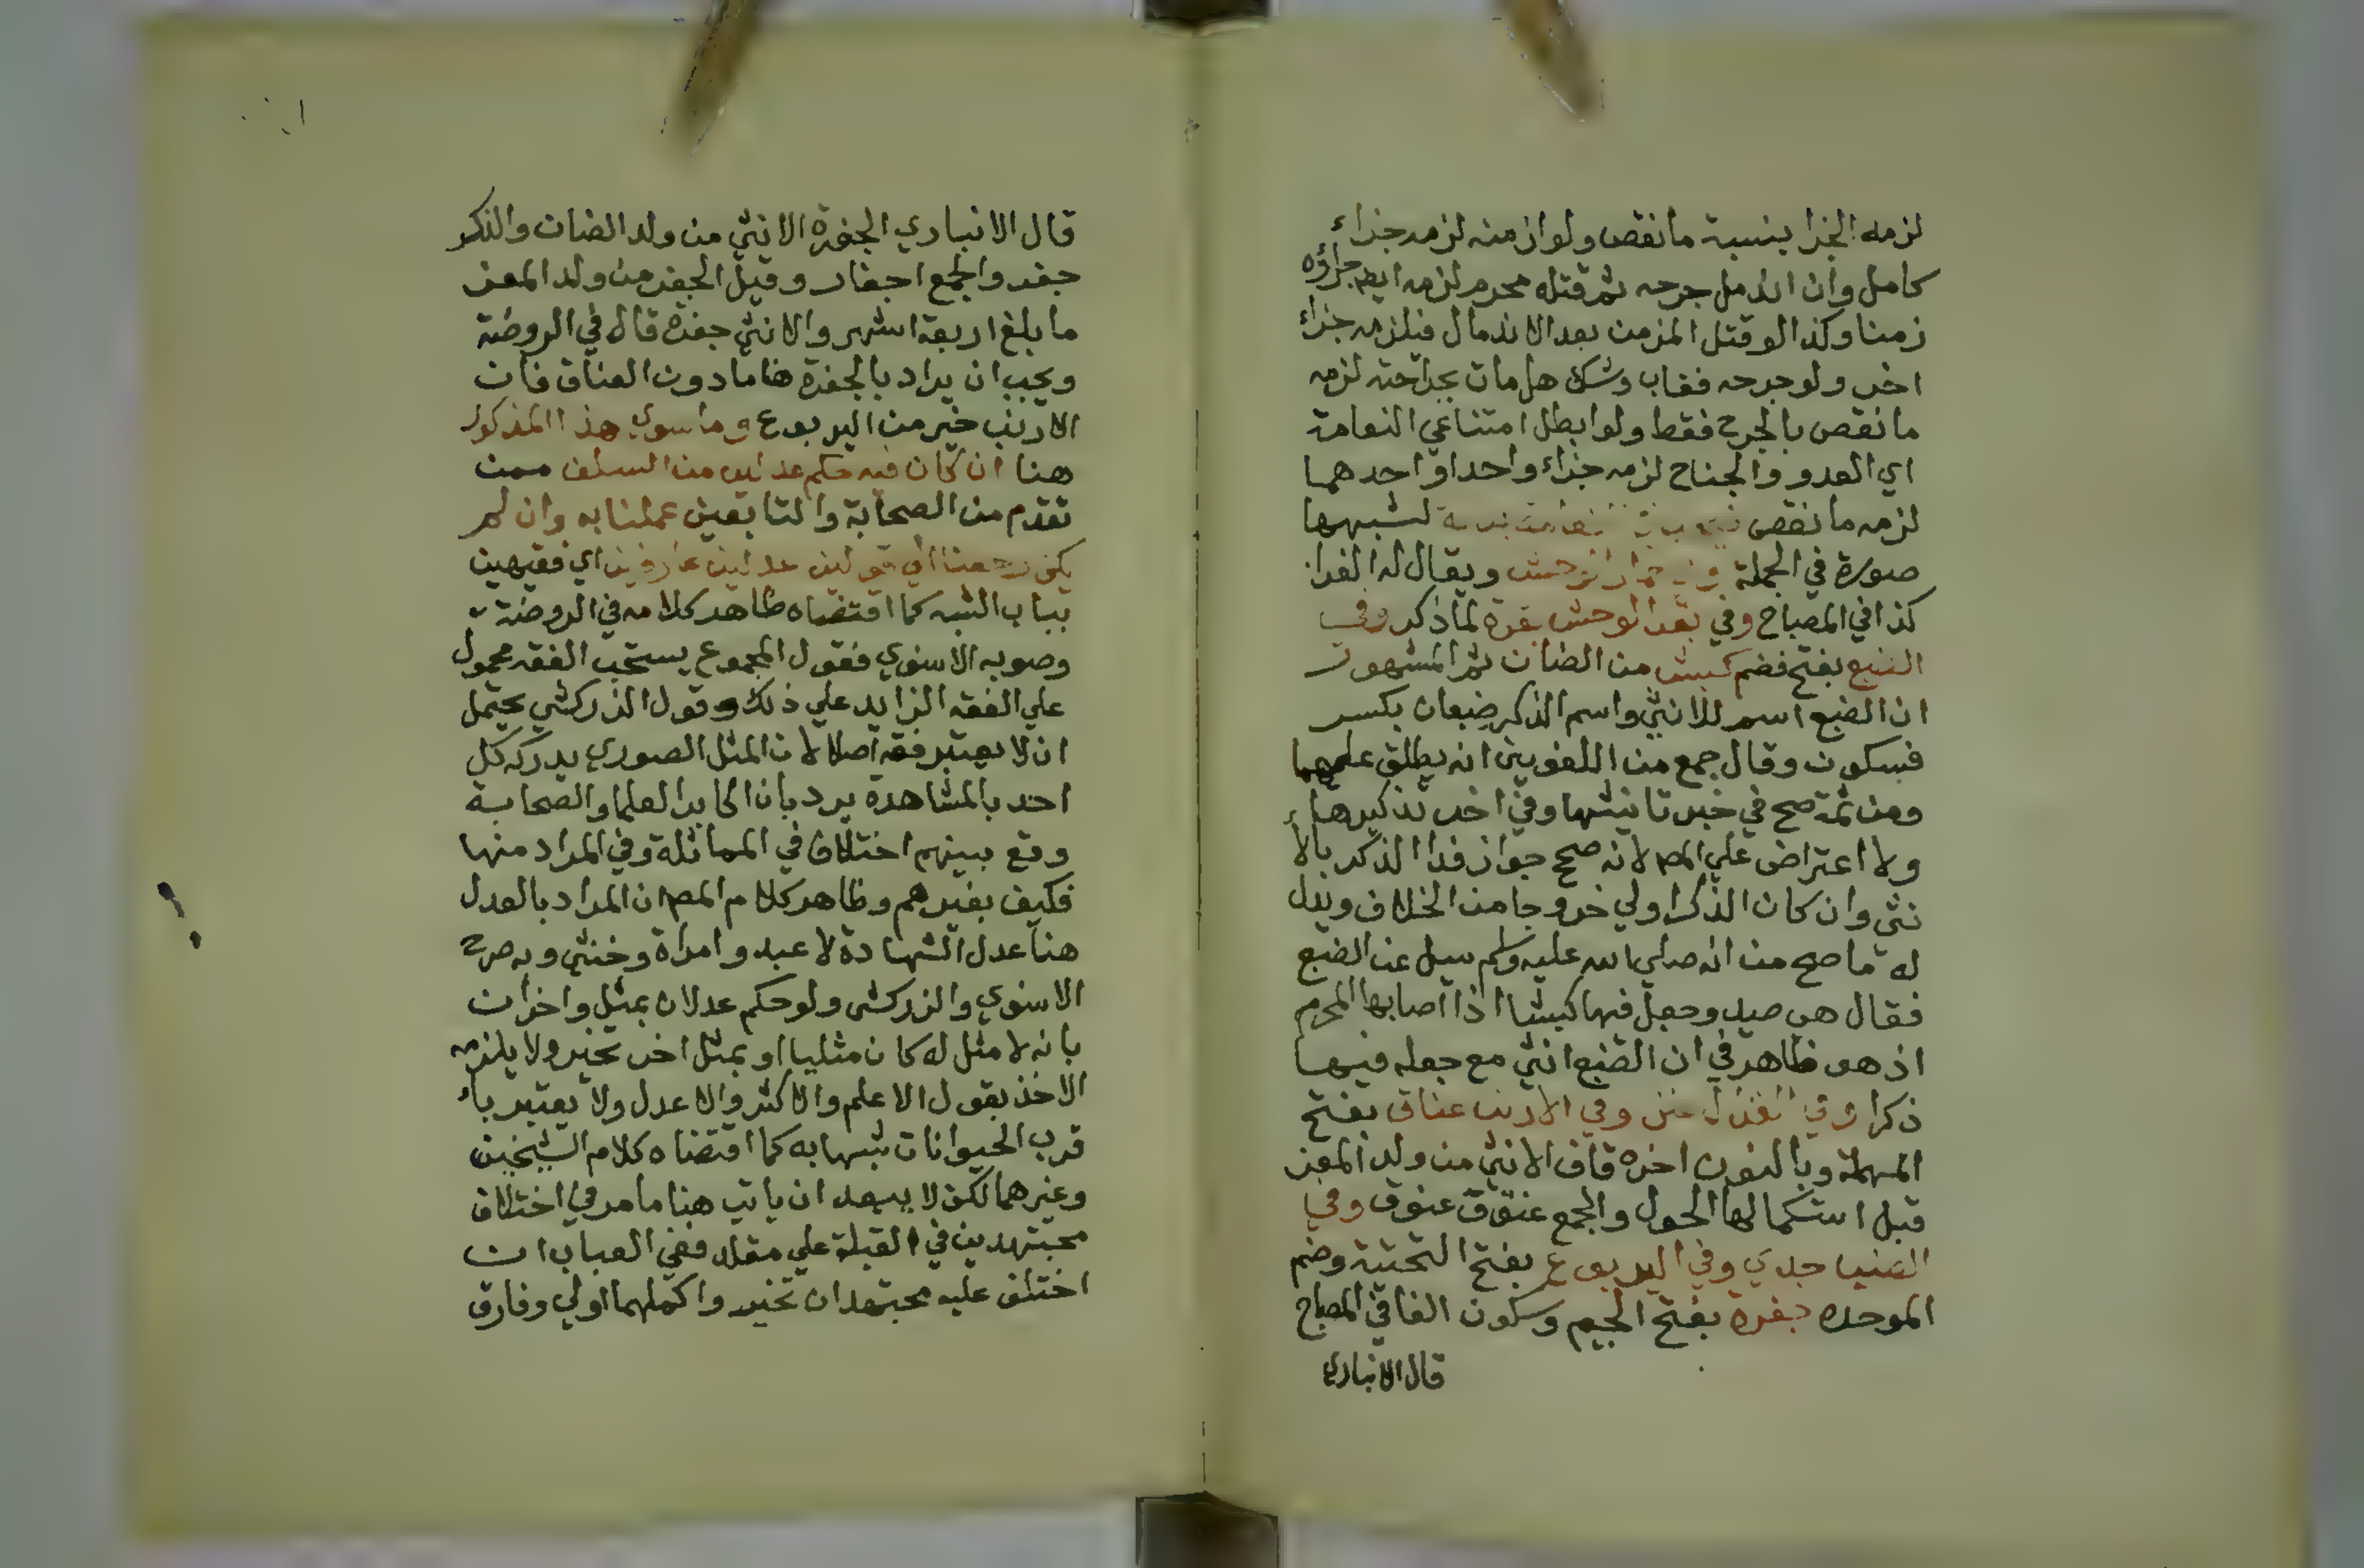 لزمه الجزا بنسبة ما نقص ولو ازمنه لزمه جزاء
كامل وان اندمل جرحه ثم قتله محرم لزمه ايضا جزاؤه
زمنا وكذا لو قتل المزمن بعد الاندمال فيلزمه جزاء
اخر ولو جرحه فغاب وشك هل مات بجراحته لزمه
ما نقص بالجرح فقط ولو ابطل امتناعي النعامة
اي العدو والجناح لزمه جزاء واحد او احدهما
لزمه ما نقص النعامة بدنة لشبهها
صورة في الجملة وفي حمار الوحش ويقال له الفرا
كذا في المصباح وفي بقر الوحش بقرة لما ذكر وفي
الضبع بفتح فضم كبش من الضان ثم المشهور
ان الضبع اسم للانثي واسم الذكر ضبعان بكسر
فسكون وقال جمع من اللغويين انه يطلق عليهما
ومن ثمة صح في خبر تانيثها وفي اخر تذكيرها
ولا اعتراض علي المص لانه صح جواز فدا الذكر بالا
نثي وان كان الذكر اولي خروجا من الخلاف ويدل
له ما صح من انه صلي الله عليه وسلم سيل عن الضبع
فقال هي صيد وجعل فيها كبشا اذا اصابها المحرم
اذ هو ظاهر في ان الضبع انثي مع جعله فيها
ذكرا وفي الغزال عنز وفي الارنب عناق بفتح
المهملة وبالنون اخره قاف الانثي من ولد المعز
قبل استكمالها الحول والجمع عنق عنوق وفي
الضبيا جدي وفي اليربوع بفتح التحتية وضم
الموحدة جفرة بفتح الجيم وسكون الفا في المصباح
قال الانباري
قال الانباري الجفرة الانثي من ولد الضان والذكر
جفر والجمع اجفار وقيل الجفر من ولد المعز
ما بلغ اربعة اشهر والانثي جفرة قال في الروضة
ويجب ان يراد بالجفرة هنا ما دون العناق فان
الارنب خير من اليربوع وما سوي هذا المذكور
هنا ان كان فيه حكم عدلين من السلف ممن
تقدم من الصحابة والتابعين عملنا به وان لم
يكن رجعنا الي قولين عدلين عارفين اي فقيهين
بباب الشبه كما اقتضاه ظاهر كلامه في الروضة
وصوبه الاسنوي فقول المجموع يستحب الفقه محمول
علي الفقه الزايد علي ذلك وقول الزركشي يحتمل
ان لا يعتبر فقه اصلا لان المثل الصوري يدركه كل
احد بالمشاهدة يرد بان اكابر العلما والصحابة
وقع بينهم اختلاف في المماثلة وفي المراد منها
فكيف بغيرهم وظاهر كلام المص ان المراد بالعدل
هنا عدل الشهادة لا عبد وامراة وخنثي وبه صرح
الاسنوي والزركشي ولو حكم عدلان بمثل واخران
بانه لا مثل له كان مثليا او بمثل اخر تخير ولا يلزمه
الاخذ بقول الاعلم والاكثر والاعدل ولا يعتبر با
قرب الحيوانات شبها به كما اقتضاه كلام الشيخين
وغيرهما لكن لا يبعد ان ياتي هنا ما مر في اختلاف
مجتهدين في القبلة علي مقلد ففي العباب ان
اختلف عليه مجتهدان تخير واكملهما اولي وفارق